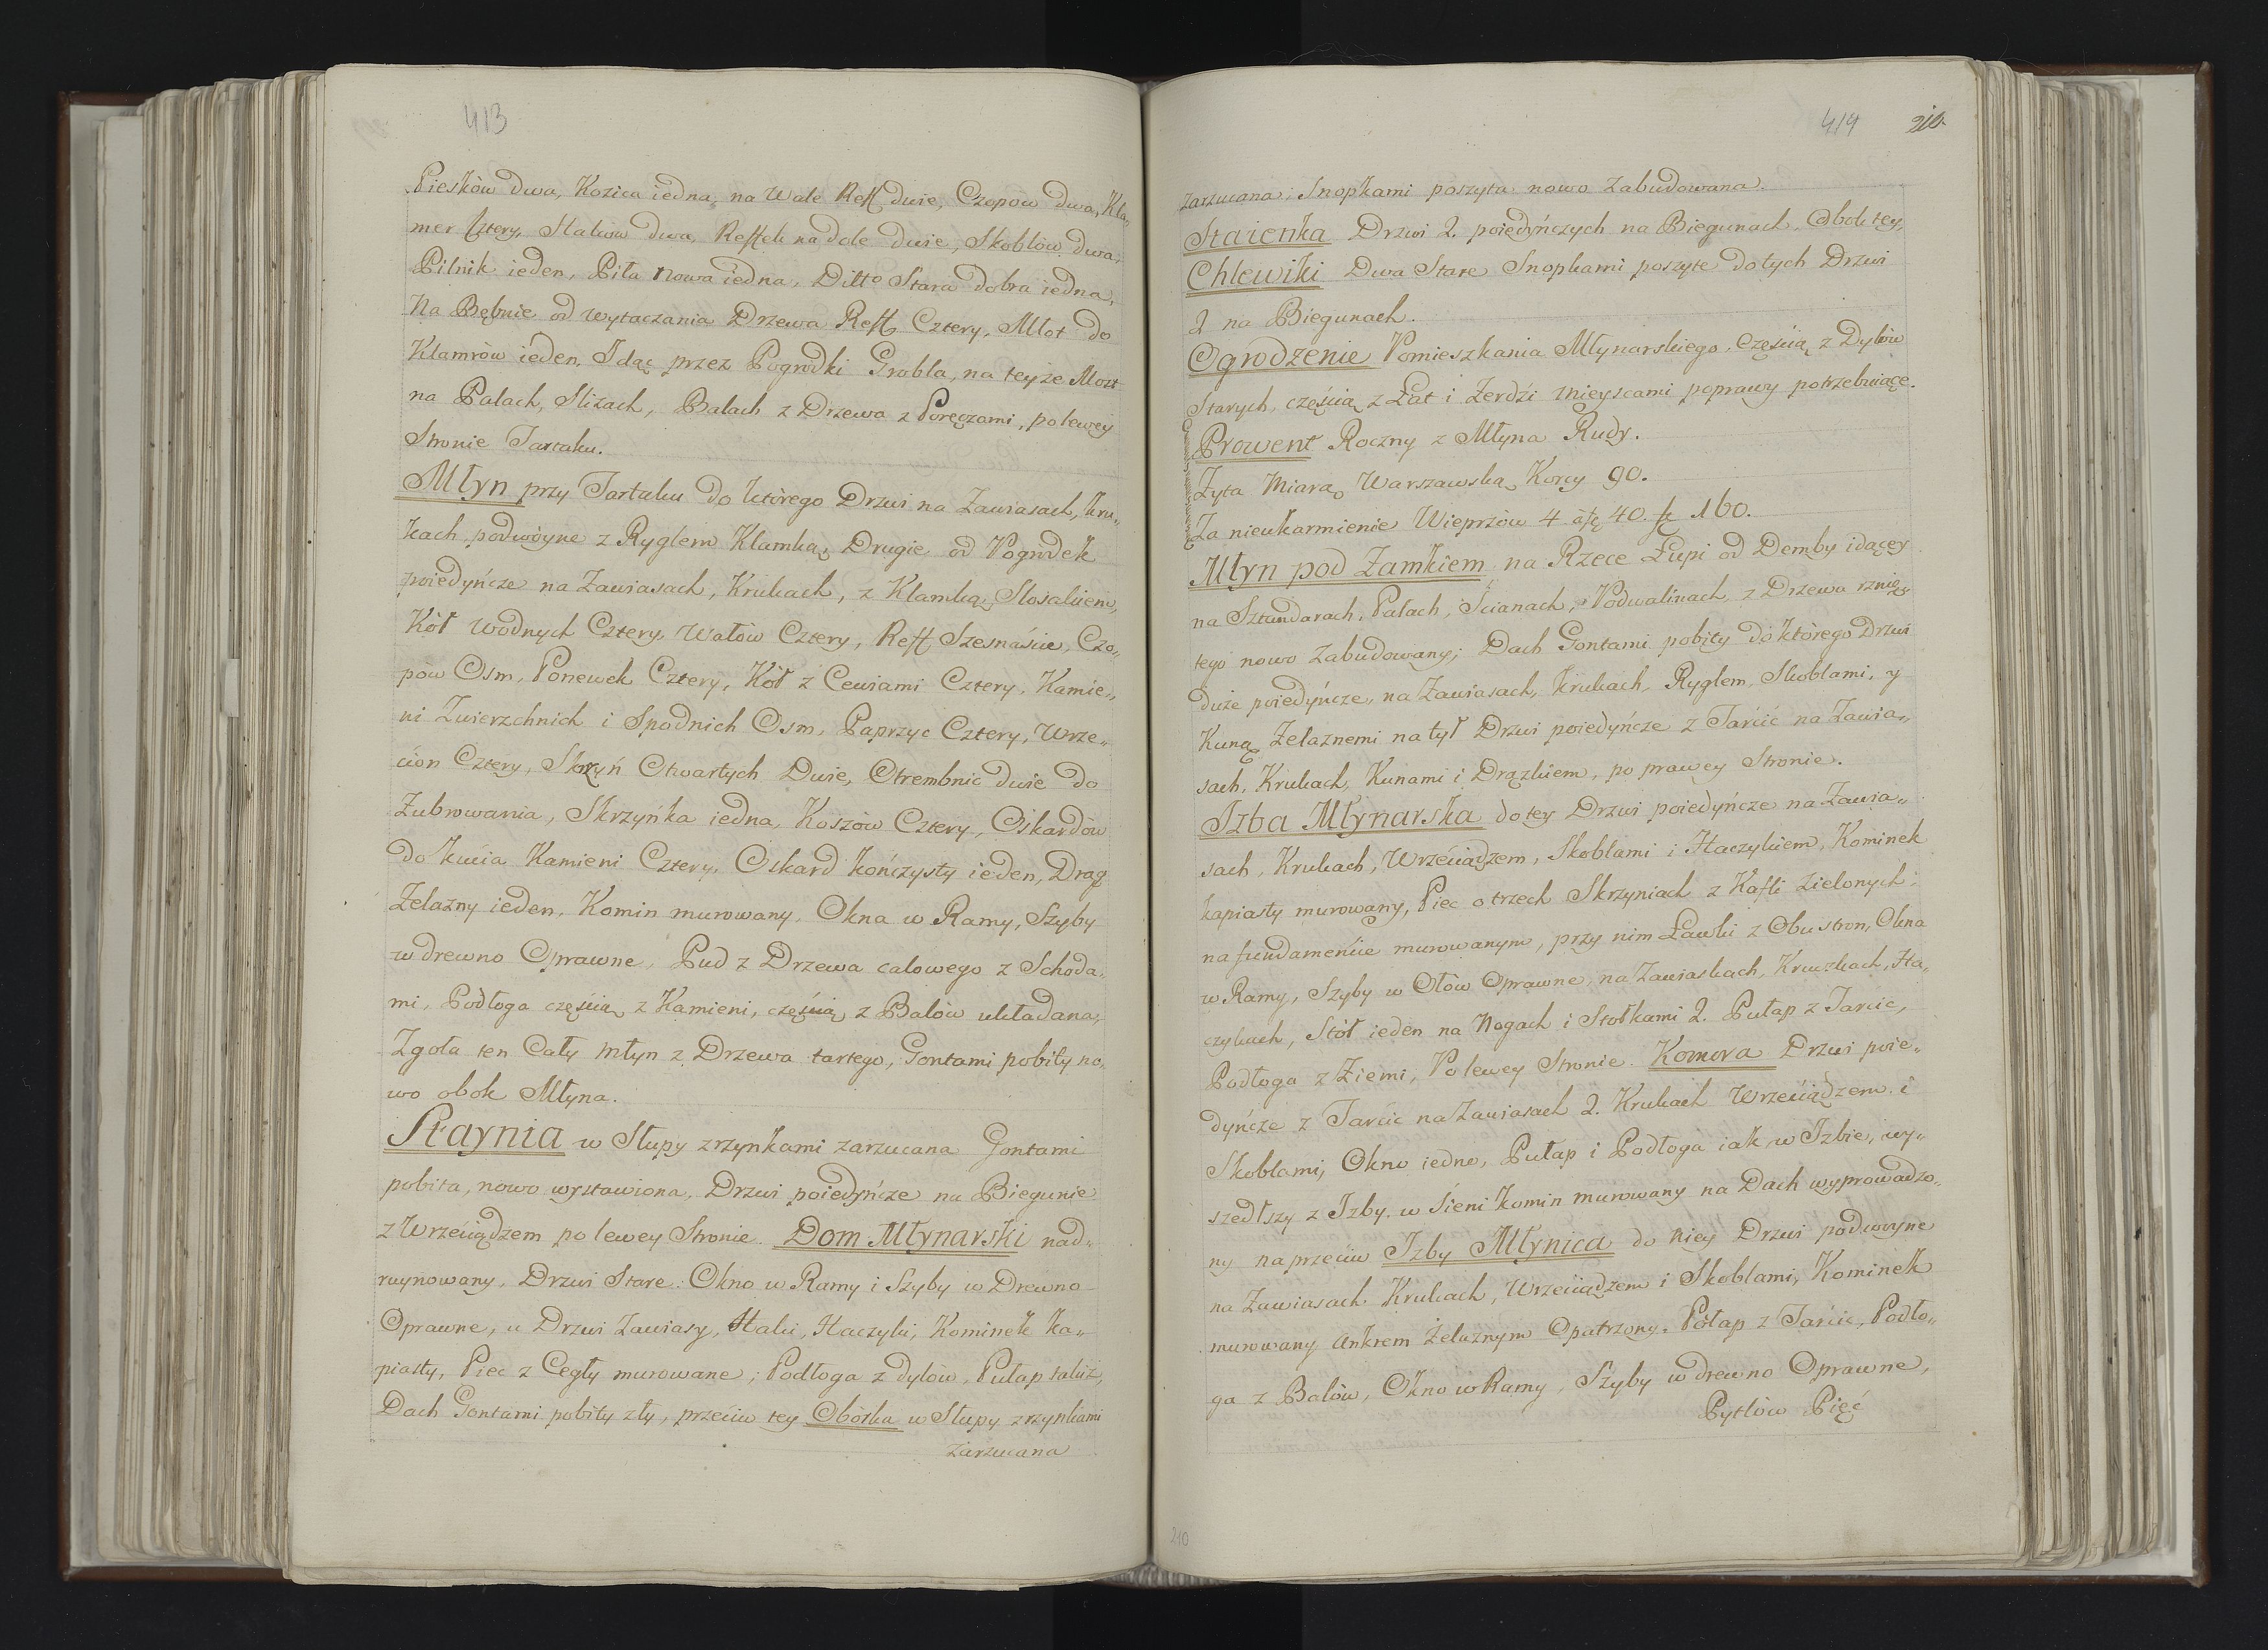 413
Piesków dwa, Kozica iedna, na Wale Reff dwie, Czopow dwa, Kla„
mer Cztery, Hakow dwa, Reffek na dole dwie, Skoblów dwa,
Pilnik ieden, Piła nowa iedna, Ditto Stara dobra iedna,
Na Bębnie od wytaczania Drzewa Reff Cztery, Młot do
Klamrów ieden, Idąc przez Pogrodki Grobla, na teyze Most
na Palach, Slizach, Balach z Drzewa z Poręczami, po lewey
Stronie Tartaku.
Młyn przy Tartaku do którego Drzwi na Zawiasach, kru„
kach podwóyne z Ryglem Klamką, Drugie od Pogrodek
poiedyńcze na Zawiasach, Krukach, z Klamką Slosakiem,
Kół wodnych Cztery, Wałów Cztery, Reff Szesnaście, Czo„
pów Osm, Ponewek Cztery, Kół z Cewiami Cztery, Kamie„
ni Zwierzchnich i Spodnich Osm, Paprzyc Cztery, Wrze„
cion Cztery, Skrzyń Otwartych Dwie, Otrembnic dwie do
Zubrowania, Skrzyńka iedna, Koszów Cztery, Oskardów
do kucia Kamieni Cztery, Oskard kończysty ieden, Drąg
Żelazny ieden, Komin murowany, Okna w Ramy, Szyby
w drewno Oprawne, Pud z Drzewa calowego z Schoda„
mi, Podłoga częścią z Kamieni, częścią z Balów układana,
Zgoła ten Cały młyn z Drzewa tartego, Gontami pobity no„
wo obok Młyna.
Staynia w Słupy zrzynkami zarzucana Gontami
pobita, nowo wystawiona, Drzwi poiedyńcze na Biegunie
z Wrzeciądzem po lewey Stronie. Dom Młynarski nad„
ruynowany, Drzwi Stare: Okno w Ramy i Szyby w Drewno
Oprawne, u Drzwi Zawiasy, Haki, Haczyki, Kominek ka„
piasty, Piec z Cegły murowane; Podłoga z dylów, Pułap taliż,
Dach Gontami pobity zły, przeciw tey Obórka w Słupy zrzynkami
zarzucana
414 210.
zarzucana: Snopkami poszyta nowo zabudowana.
Staienka Drzwi 2. poiedyńczych na Biegunach, Obok tey,
Chlewiki Dwa Stare Snopkami poszyte do tych Drzwi
2 na Biegunach.
Ogrodzenie Pomieszkania Młynarskiego, Częścią z Dylów
Starych, częścią z Łat i Żerdźi mieyscami poprawy potrzebuiące.
Prowent Roczny z Młyna Rudy.
Żyta Miarą Warszawską Korcy 90.
Za nieukarmienie Wieprzów 4 à f 40. f 160.
Młyn pod Zamkiem na Rzece Łupi od Demby idącey
na Sztandarach, Palach, Scianach, Podwalinach z Drzewa rznię„
tego nowo zabudowany; Dach Gontami pobity do którego Drzwi
duże poiedyńcze, na Zawiasach, krukach, Ryglem, Skoblami, y
Kuną Żelaznemi na tył Drzwi poiedyńcze z Tarcic na Zawia„
sach, Krukach, Kunami i Drązkiem, po prawey Stronie.
Izba Młynarska do tey Drzwi poiedyńcze na Zawia„
sach, Krukach, Wrzeciądzem, Skoblami i Haczykiem, Kominek
kapiasty murowany, Piec o trzech Skrzyniach z Kafli zielonych
na fundamencie murowanym, przy nim Ławki z Obu stron, Okna
w Ramy, Szyby w Ołów Oprawne, na Zawiaskach, Kruczkach, Ha„
czykach, Stół ieden na Nogach i Stołkami 2. Pułap z Tarcic,
Podłoga z Ziemi, Po lewey Stronie. Komora Drzwi poie„
dyńcze z Tarcic na Zawiasach 2. Krukach Wrzeciądzem i
Skoblami, Okno iedno, Pułap i Podłoga iak w Izbie, wy„
szedłszy z Izby w Sieni komin murowany na Dach wyprowadzo„
ny naprzeciw Izby Młynica do niey Drzwi podwoyne
na Zawiasach Krukach, Wrzeciądzem i Skoblami, Kominek
murowany Ankrem żelaznym Opatrzony, Półap z Tarcic, Podło„
ga z Balów, Okno w Ramy, Szyby w drewno Oprawne,
Pytlów Pięć
210